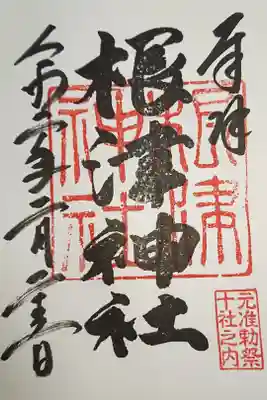 奉拝
根津神社
根津神社
元准勅祭
十社之内
令和二年二月二十三日